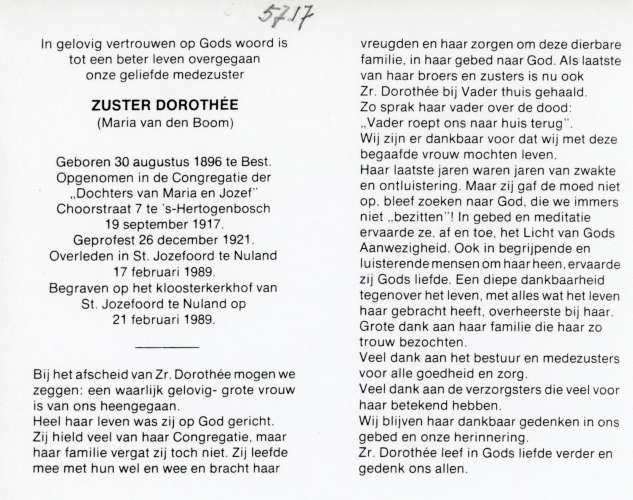 5717
In gelovig vertrouwen op Gods woord is
tot een beter leven overgegaan
onze geliefde medezuster
ZUSTER DOROTHÉE
(Maria van den Boom)
Geboren 30 augustus 1896 te Best.
Opgenomen in de Congregatie der
„Dochters van Maria en Jozef"
Choorstraat 7 te 's-Hertogenbosch
19 september 1917.
Geprofest 26 december 1921.
Overleden in St. Jozefoord te Nuland
17 februari 1989.
Begraven op het kloosterkerkhof van
St. Jozefoord te Nuland op
21 februari 1989.
Bij het afscheid van Zr. Dorothée mogen we
zeggen: een waarlijk gelovig- grote vrouw
is van ons heengegaan.
Heel haar leven was zij op God gericht.
Zij hield veel van haar Congregatie, maar
haar familie vergat zij toch niet. Zij leefde
mee met hun wel en wee en bracht haar
vreugden en haar zorgen om deze dierbare
familie, in haar gebed naar God. Als laatste
van haar broers en zusters is nu ook
Zr. Dorothée bij Vader thuis gehaald.
Zo sprak haar vader over de dood:
„Vader roept ons naar huis terug".
Wij zijn er dankbaar voor dat wij met deze
begaafde vrouw mochten leven.
Haar laatste jaren waren jaren van zwakte
en ontluistering. Maar zij gaf de moed niet
op, bleef zoeken naar God, die we immers
niet „bezitten"! In gebed en meditatie
ervaarde ze, af en toe, het Licht van Gods
Aanwezigheid. Ook in begrijpende en
luisterende mensen om haar heen, ervaarde
zij Gods liefde. Een diepe dankbaarheid
tegenover het leven, met alles wat het leven
haar gebracht heeft, overheerste bij haar.
Grote dank aan haar familie die haar zo
trouw bezochten.
Veel dank aan het bestuur en medezusters
voor alle goedheid en zorg.
Veel dank aan de verzorgsters die veel voor
haar betekend hebben.
Wij blijven haar dankbaar gedenken in ons
gebed en onze herinnering.
Zr. Dorothée leef in Gods liefde verder en
gedenk ons allen.